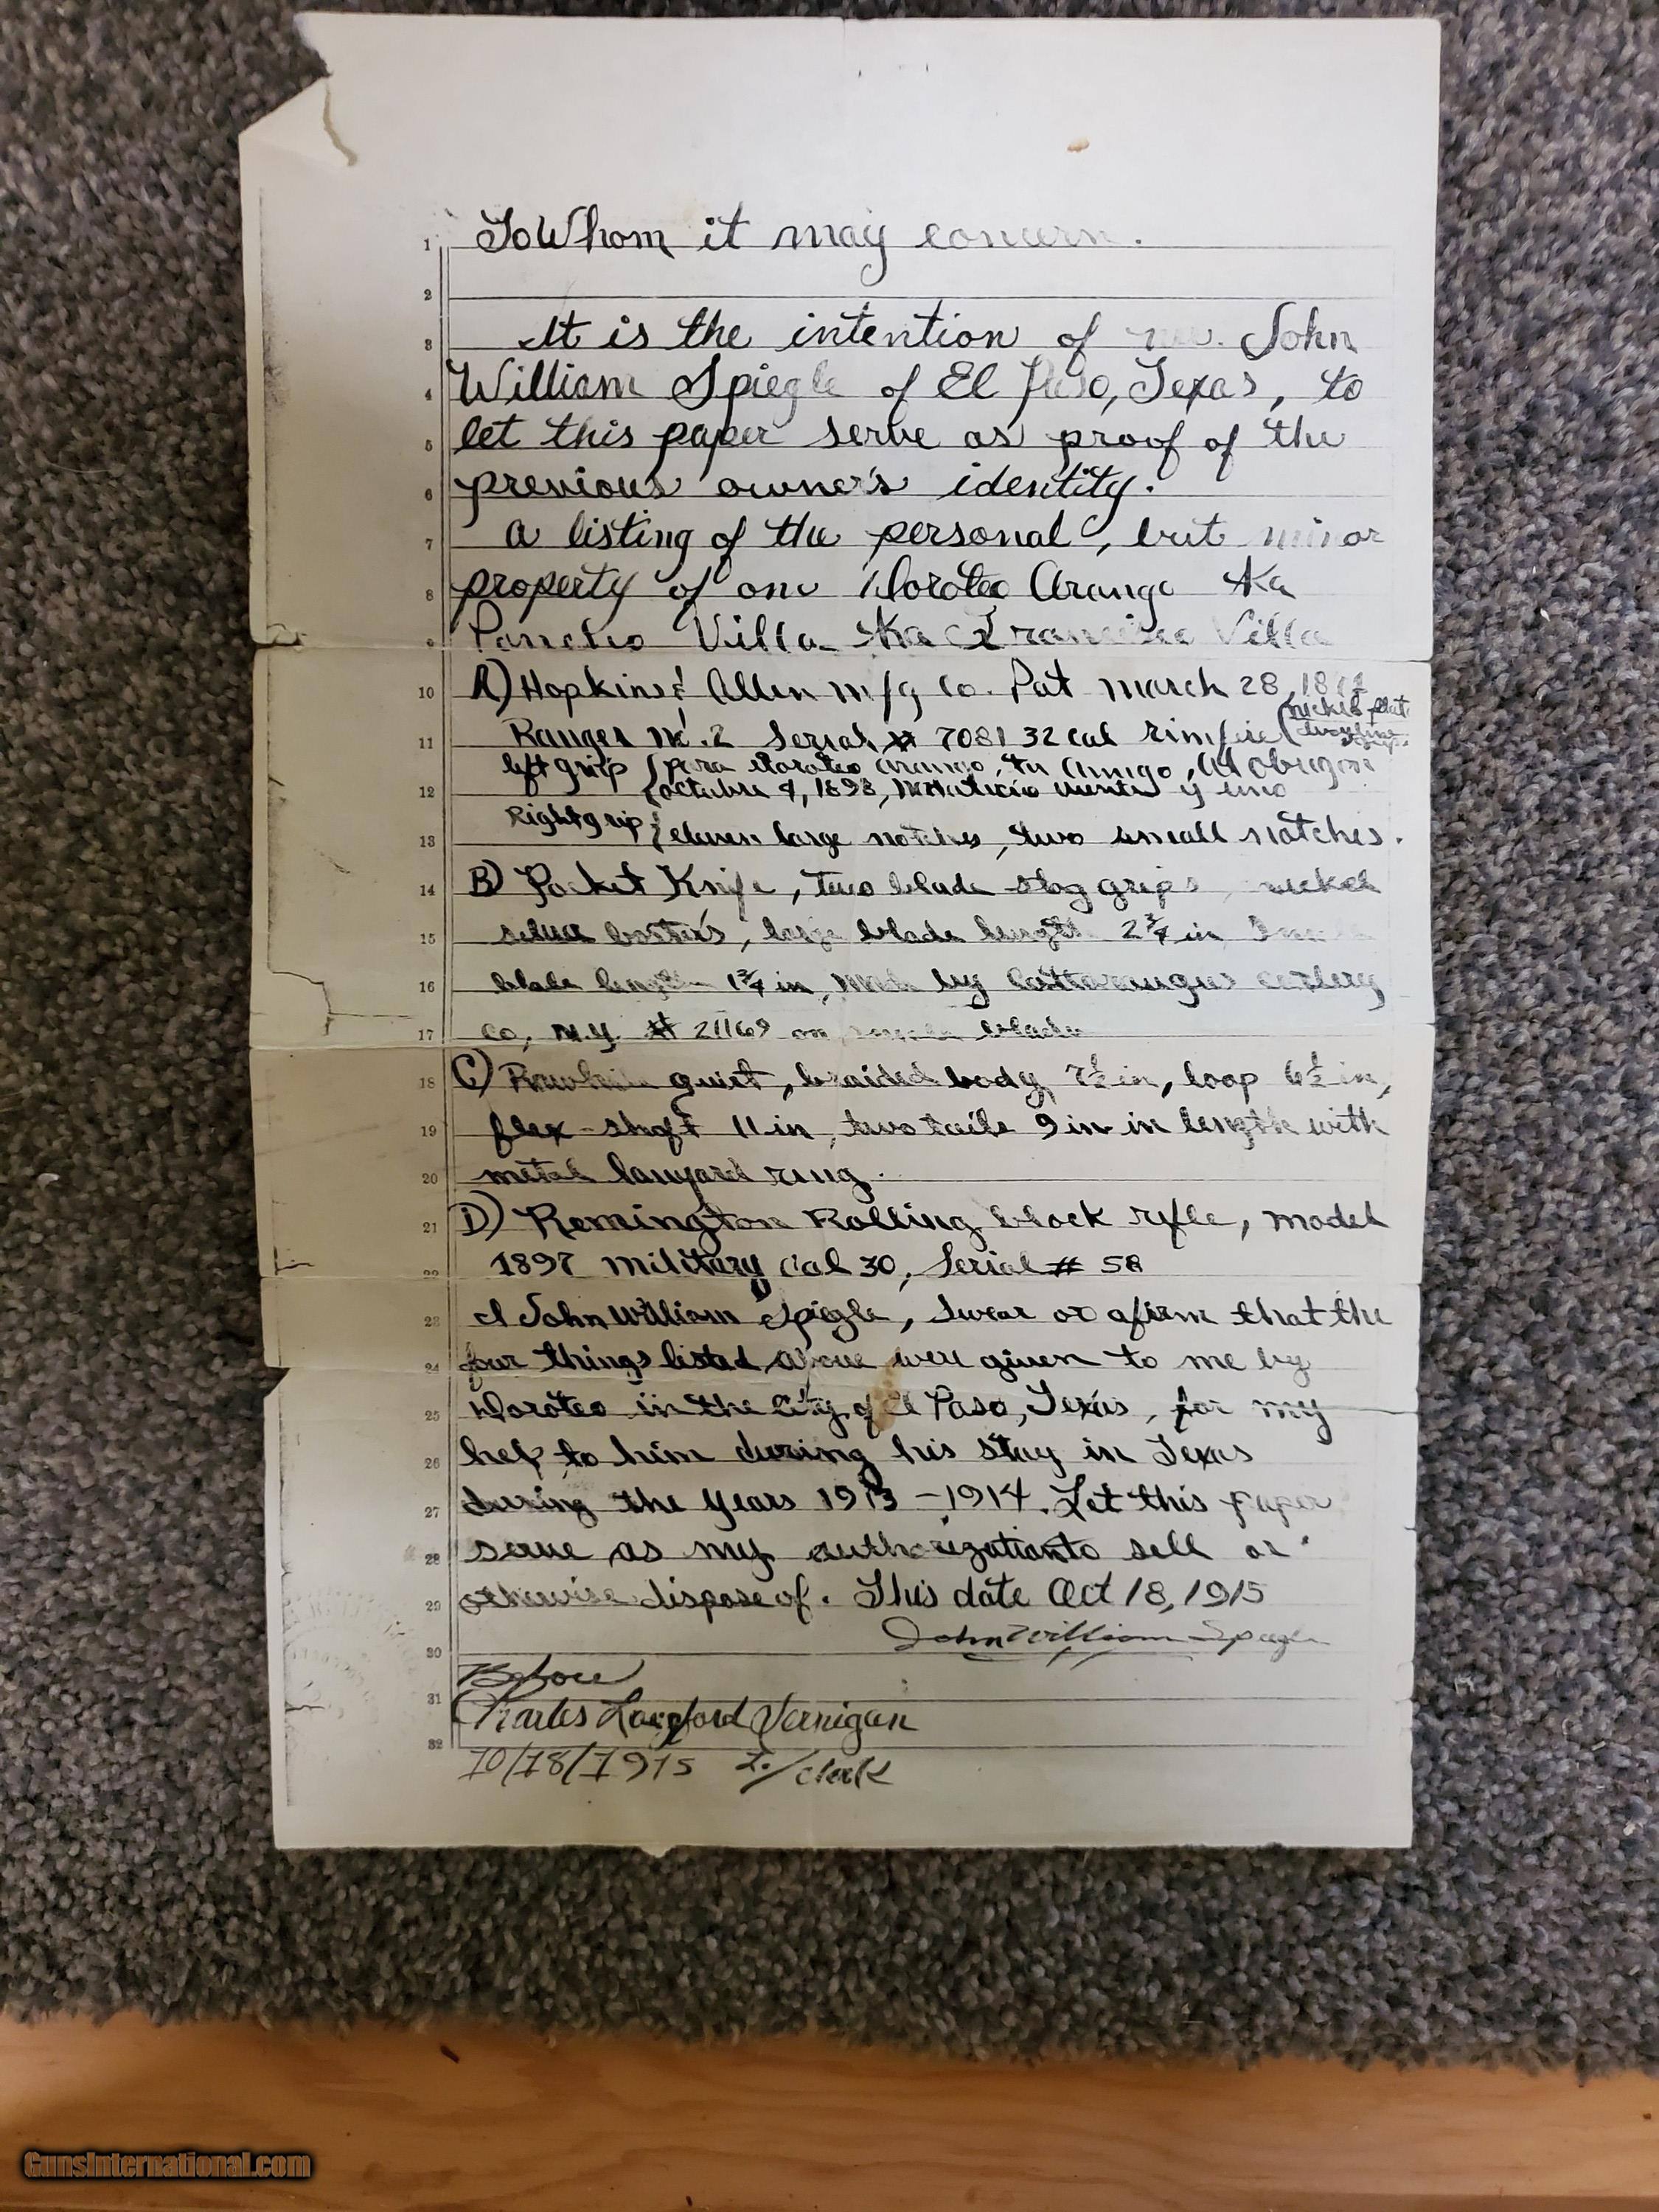 1 To Whom it may concern.
2
3 It is the intention of me. John
4 William Spiegle of El Paso, Texas, to
5 let this paper serve as proof of the
6 previous owner's identity.
7 A listing of the personal, but minor
8 property of one Doroteo Arango Aka
9 Pancho Villa Aka Francisco Villa
10 A) Hopkins & Allen mfg Co. Pat march 28, 1871
11 Ranger No. 2 Serial # 7081 32 cal rimfire (nickle plate
left grip { para Doroteo Arango, tu Amigo, Al Obregon
12 { octubre 4, 1898, y uno
Right grip {
13 eleven large notches, two small notches.
14 B) Pocket Knife, two blade stag grips, nickel
15 silver bolsters, large blade length 2 3/4 in
16 blade length 1 3/4 in, made by Cattaraugus cutlery
17 co, N.Y. # 21169 on blade
18 C) Rawhide quirt, braided body 7 1/2 in, loop 6 1/2 in,
19 flex-shaft 11 in, two tails 9 in in length with
20 metal lanyard ring.
21 D) Remington Rolling block rifle, model
22 1897 military Cal 30, Serial # 58
23 I John William Spiegle, Swear or afirm that the
24 four things listed above were given to me by
25 Doroteo in the City of El Paso, Texas, for my
26 help to him during his stay in Texas
27 during the years 1913-1914. Let this paper
28 serve as my authorization to sell or
29 otherwise dispose of. This date Oct 18, 1915
30 John William Spiegle
Before
31 Charles Langford
32
10/18/1915 /clerk
GunsInternational.com